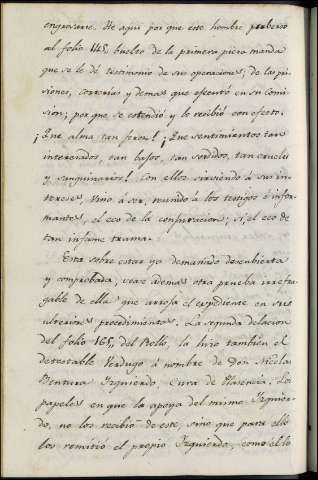 engrosarse. He aqui por que este hombre perberso
al folio 145, buelto de la primera pieza manda
que se le dé testimonio de sus operaciones; de las pri-
siones, correrias y demas que efectuó en su comi-
sion; por que se estendió y lo recibió con efecto.
¡Que alma tan feros! ¡Que sentimientos tan
interesados, tan bajos, tan sordidos, tan crueles
y sanguinarios! Con ellos sirviendo á sus in-
tereses, vino á ser, unido á los testigos é infor-
mantes, el eco de la conspiracion; si, el eco de
tan infame trama.
Esta sobre estar ya demaciado descubierta
y comprobada, vease ademas otra prueba irrefra-
gable de ella que arroja el expediente en sus
ulteriores procedimientos. La segunda delacion
del folio 165, del Bello, la hizo tambien el
detestable Verdugo á nombre de Don Nicolas
Bentura Izquierdo Cura de Plasencia. Los
papeles en que la apoya del mismo Izquier-
do, no los recibió de este, sino que para ello
los remitió el propio Izquierdo, como él lo